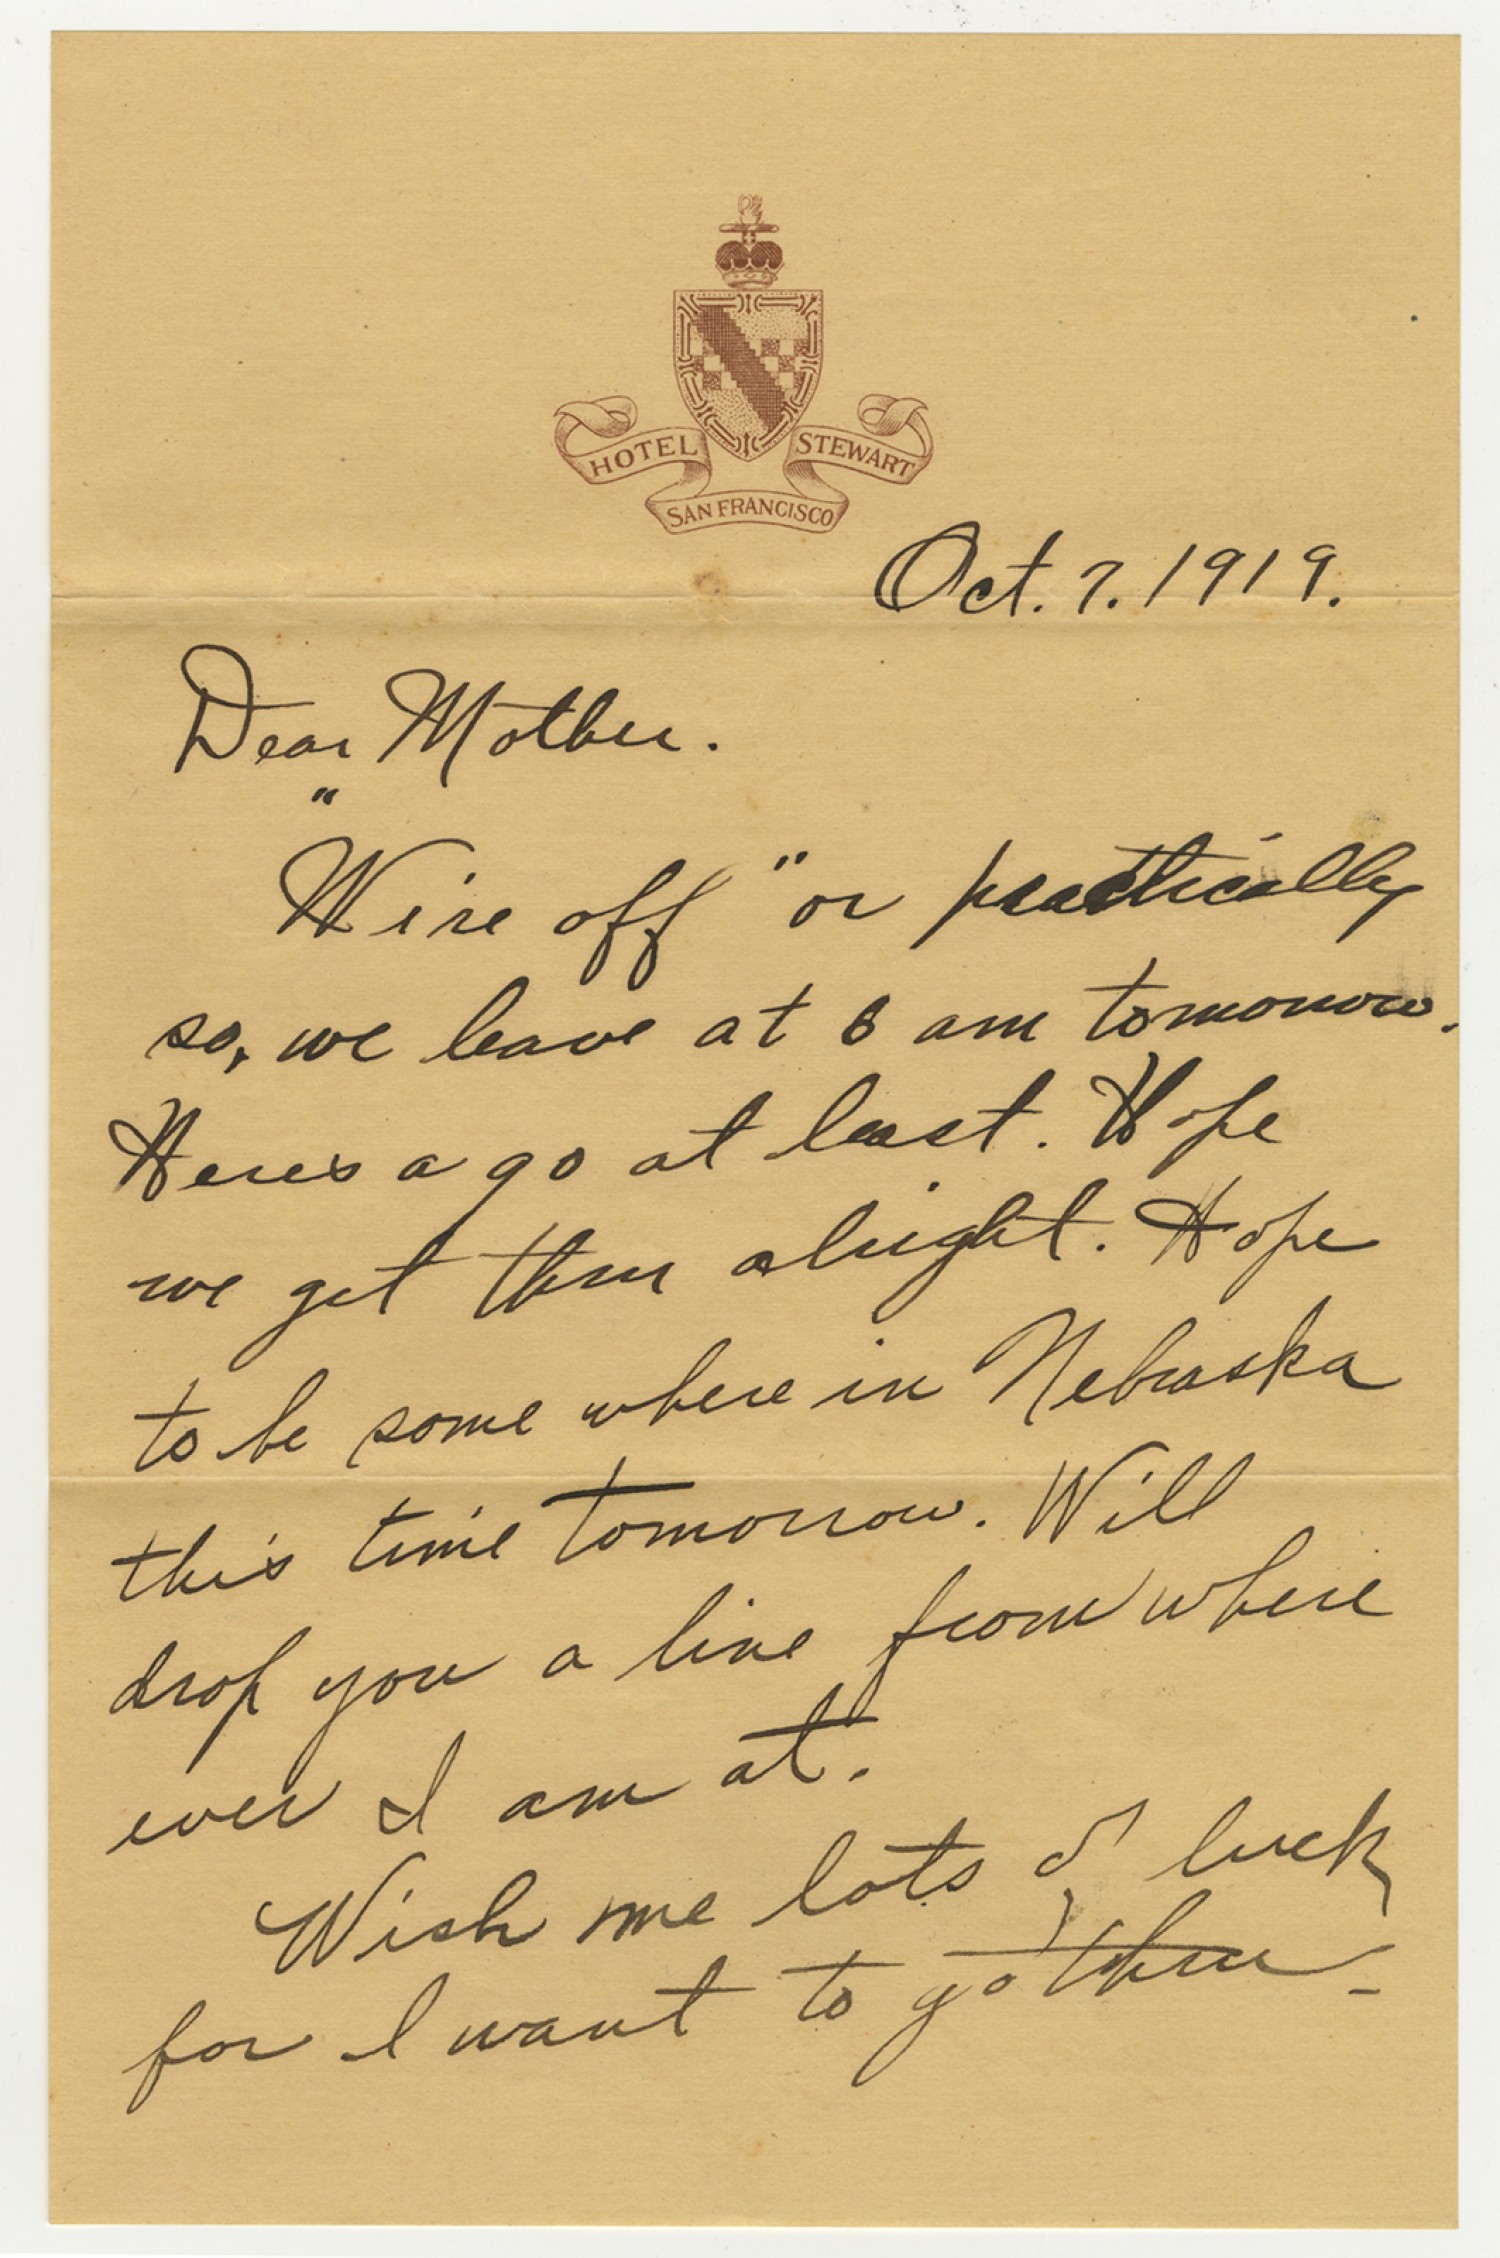 HOTEL STEWART
SAN FRANCISCO
Oct. 7. 1919.
Dear Mother.
"Wire off" or practically
so, we leave at 6 am tomorrow.
Heres a go at last. Hope
we get thru alright. Hope
to be some where in Nebraska
this time tomorrow. Will
drop you a line from where
ever I am at.
Wish me lots of luck
for I want to go thru.